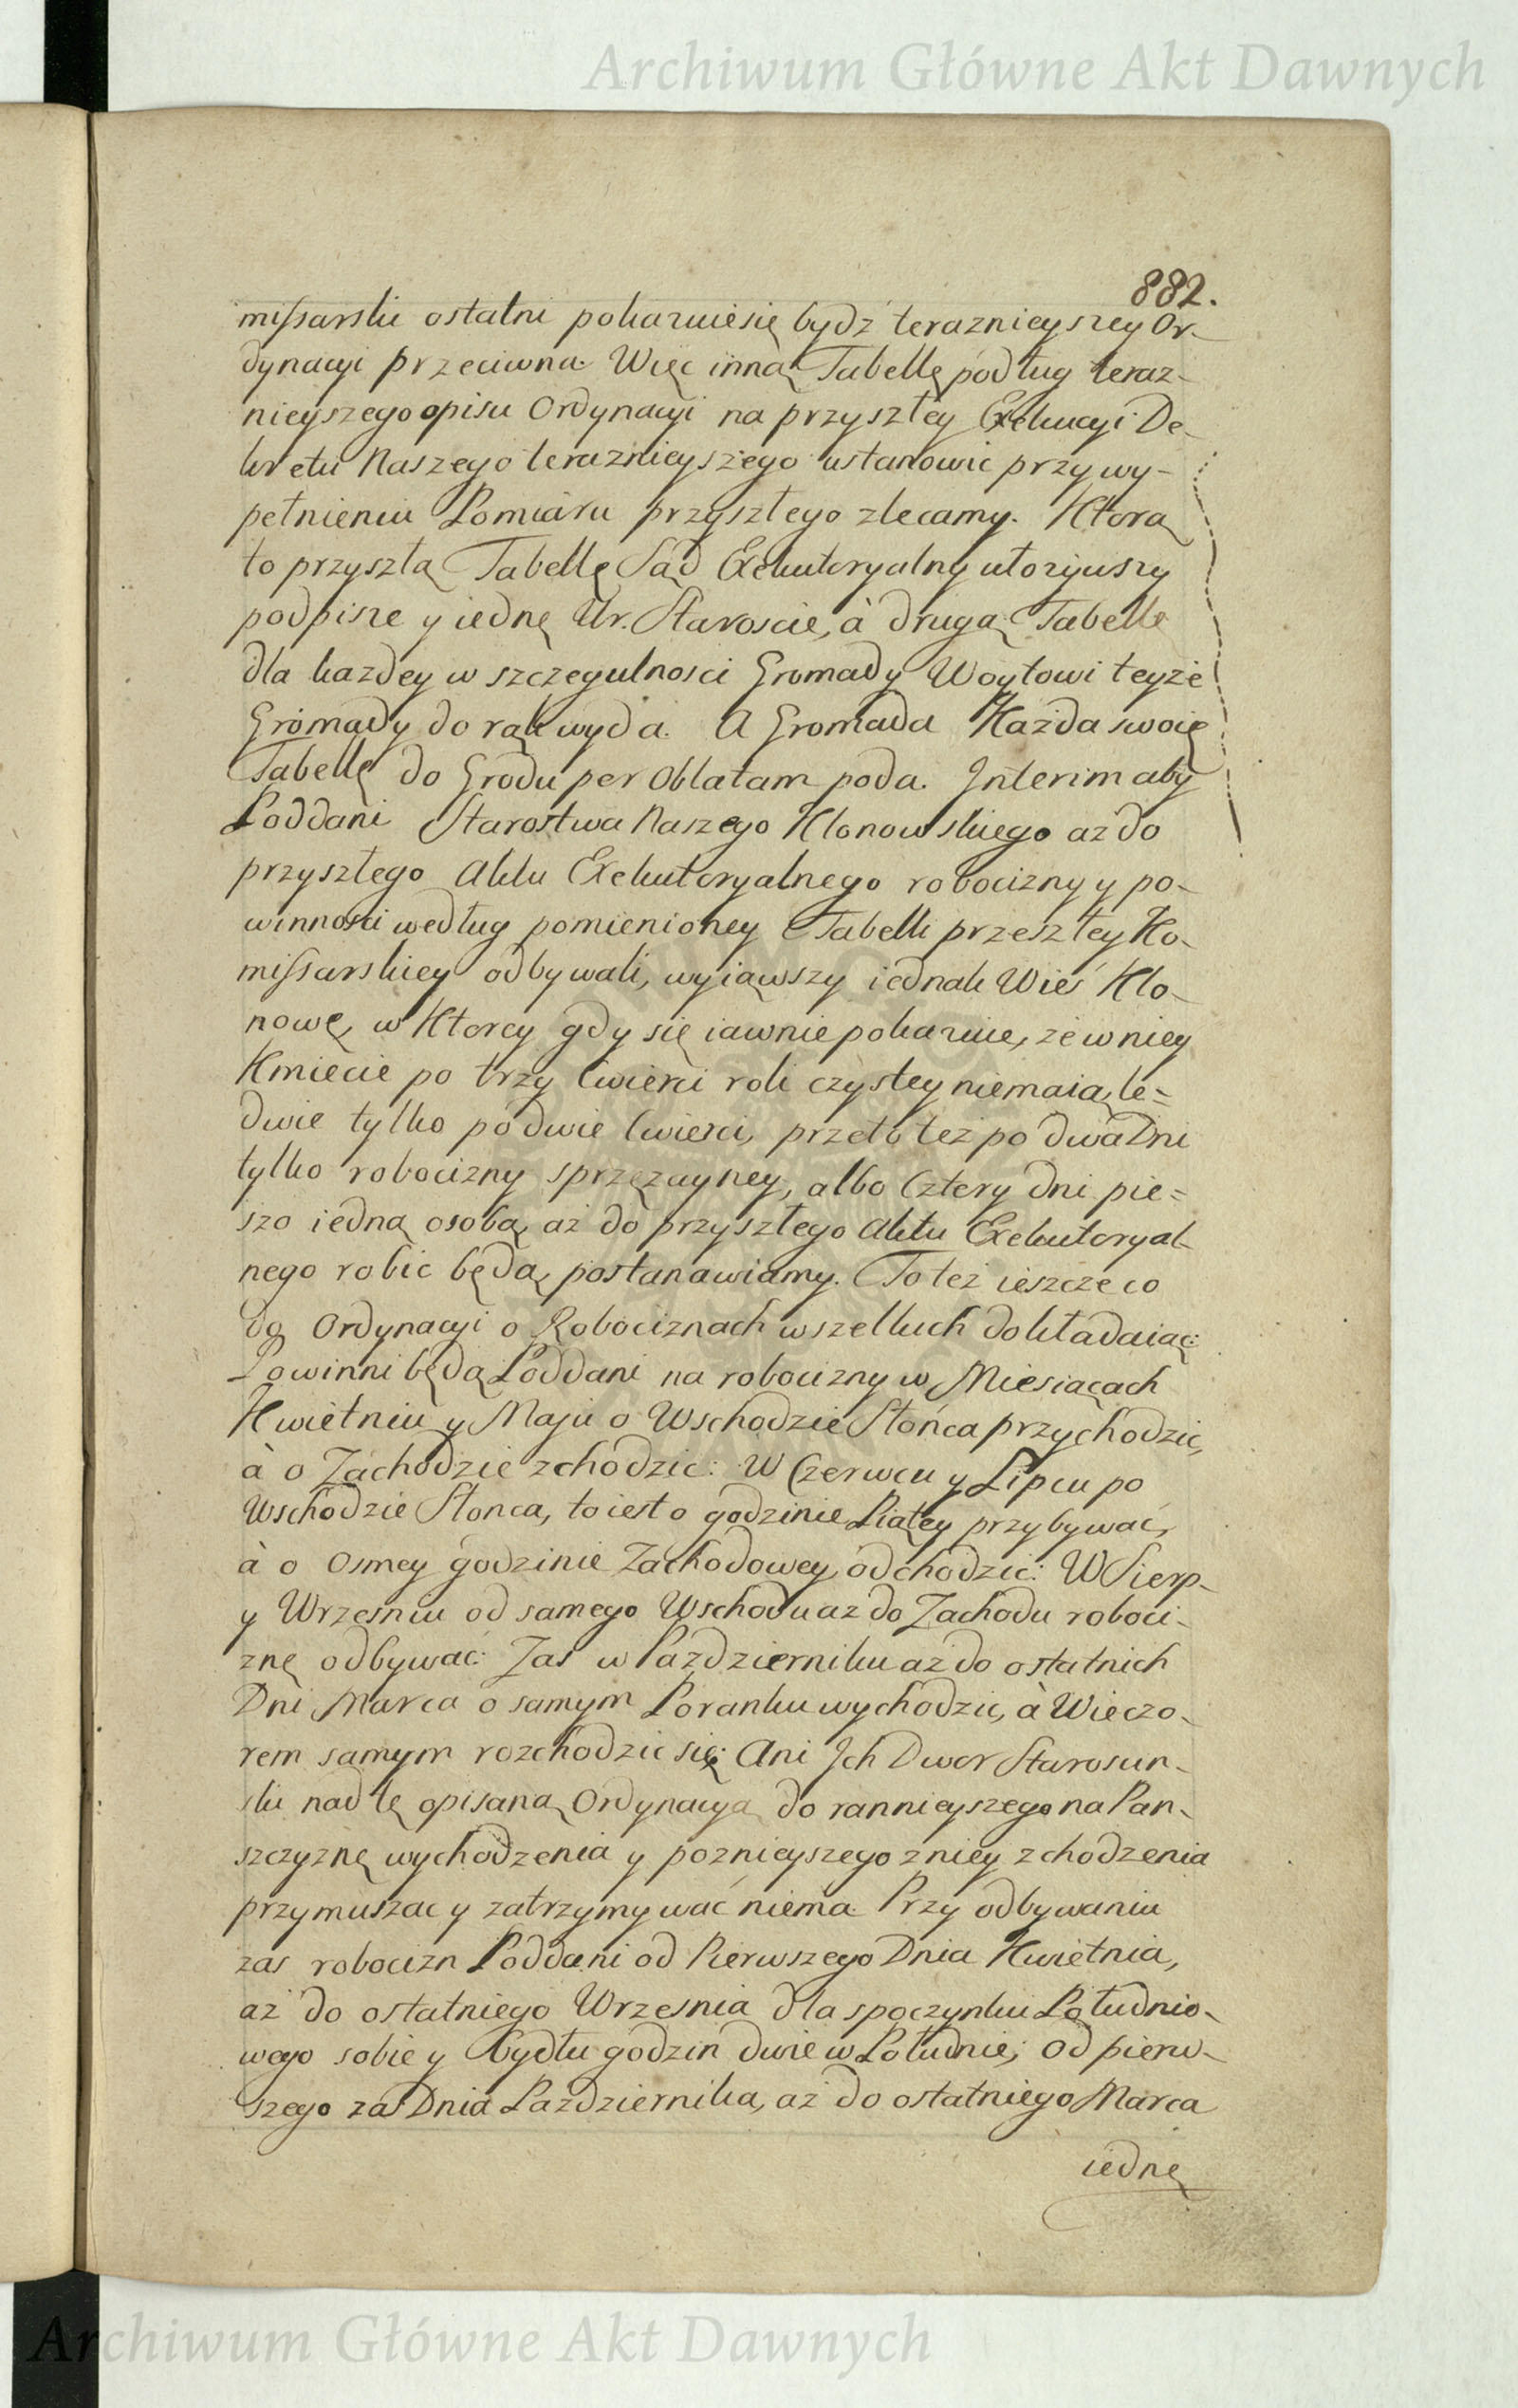 Archiwum Główne Akt Dawnych
882.
missarski ostatni pokazuiesię bydź teraznieyszey Or-
dynacyi przeciwna. Więc inną Tabellę podług teraz-
nieyszego opisu Ordynacyi na przyszłey Exekucyi De-
kretu Naszego teraznieyszego ustanowic przy wy-
pełnieniu Pomiaru przyszłego zlecamy. Ktorą
to przyszłą Tabellę Sąd Exekutoryalny utozywszy
podpisze y iednę Ur. Staroscie, à drugą Tabellę
dla kazdey w szczegulnosci Gromady Woytowi teyże
Gromady do rąk wyda. A Gromada Każda swoię
Tabellę do Grodu per Oblatam poda. Interim aby
Poddani Starostwa Naszego Klonowskiego az do
przyszłego Aktu Exekutoryalnego robocizny y po-
winnosci według pomienioney Tabelli przeszłey Ko-
missarskiey odbywali, wyiąwszy iednak Wieś Klo-
nowę, w Ktorey gdy się iawnie pokazuie, że w niey
Kmiecie po trzy Cwierci roli czystey niemaią, le=
dwie tylko po dwie Cwierci, przeto też po dwa Dni
tylko robocizny sprzęzayney, albo Cztery dni pie=
szo iedną osobą, aż do przyszłego Aktu Exekutoryal-
nego robic będą, postanawiamy. To też ieszcze co
do Ordynacyi o Robociznach wszelkich dokładaiąc:
Powinni będą Poddani na robocizny w Miesiącach
Kwietniu y Maju o Wschodzie Słońca przychodzic,
à o Zachodzie zchodzic: W Czerwcu y Lipcu po
Wschodzie Słonca, to iest o godzinie Piątey przybywać,
à o Osmey godzinie Zachodowey odchodzic: W Sierp-
y Wrzesniu od samego Wschodu az do Zachodu roboci-
znę odbywać: Zas w Pazdzierniku aż do ostatnich
Dni Marca o samym Poranku wychodzic, à Wieczo-
rem samym rozchodzic się: Ani Ich Dwor Starosciń-
ski nad tę opisaną Ordynacyą do rannieyszego na Pan-
szczyznę wychodzenia y poznieyszego z niey zchodzenia
przymuszac y zatrzymywać niema. Przy odbywaniu
zas robocizn Poddani od Pierwszego Dnia Kwietnia,
aż do ostatniego Wrzesnia dla spoczynku Południo-
wego sobie y bydłu godzin dwie w Południe; Od pierw-
szego zas Dnia Pazdziernika, aż do ostatniego Marca
iednę
Archiwum Główne Akt Dawnych